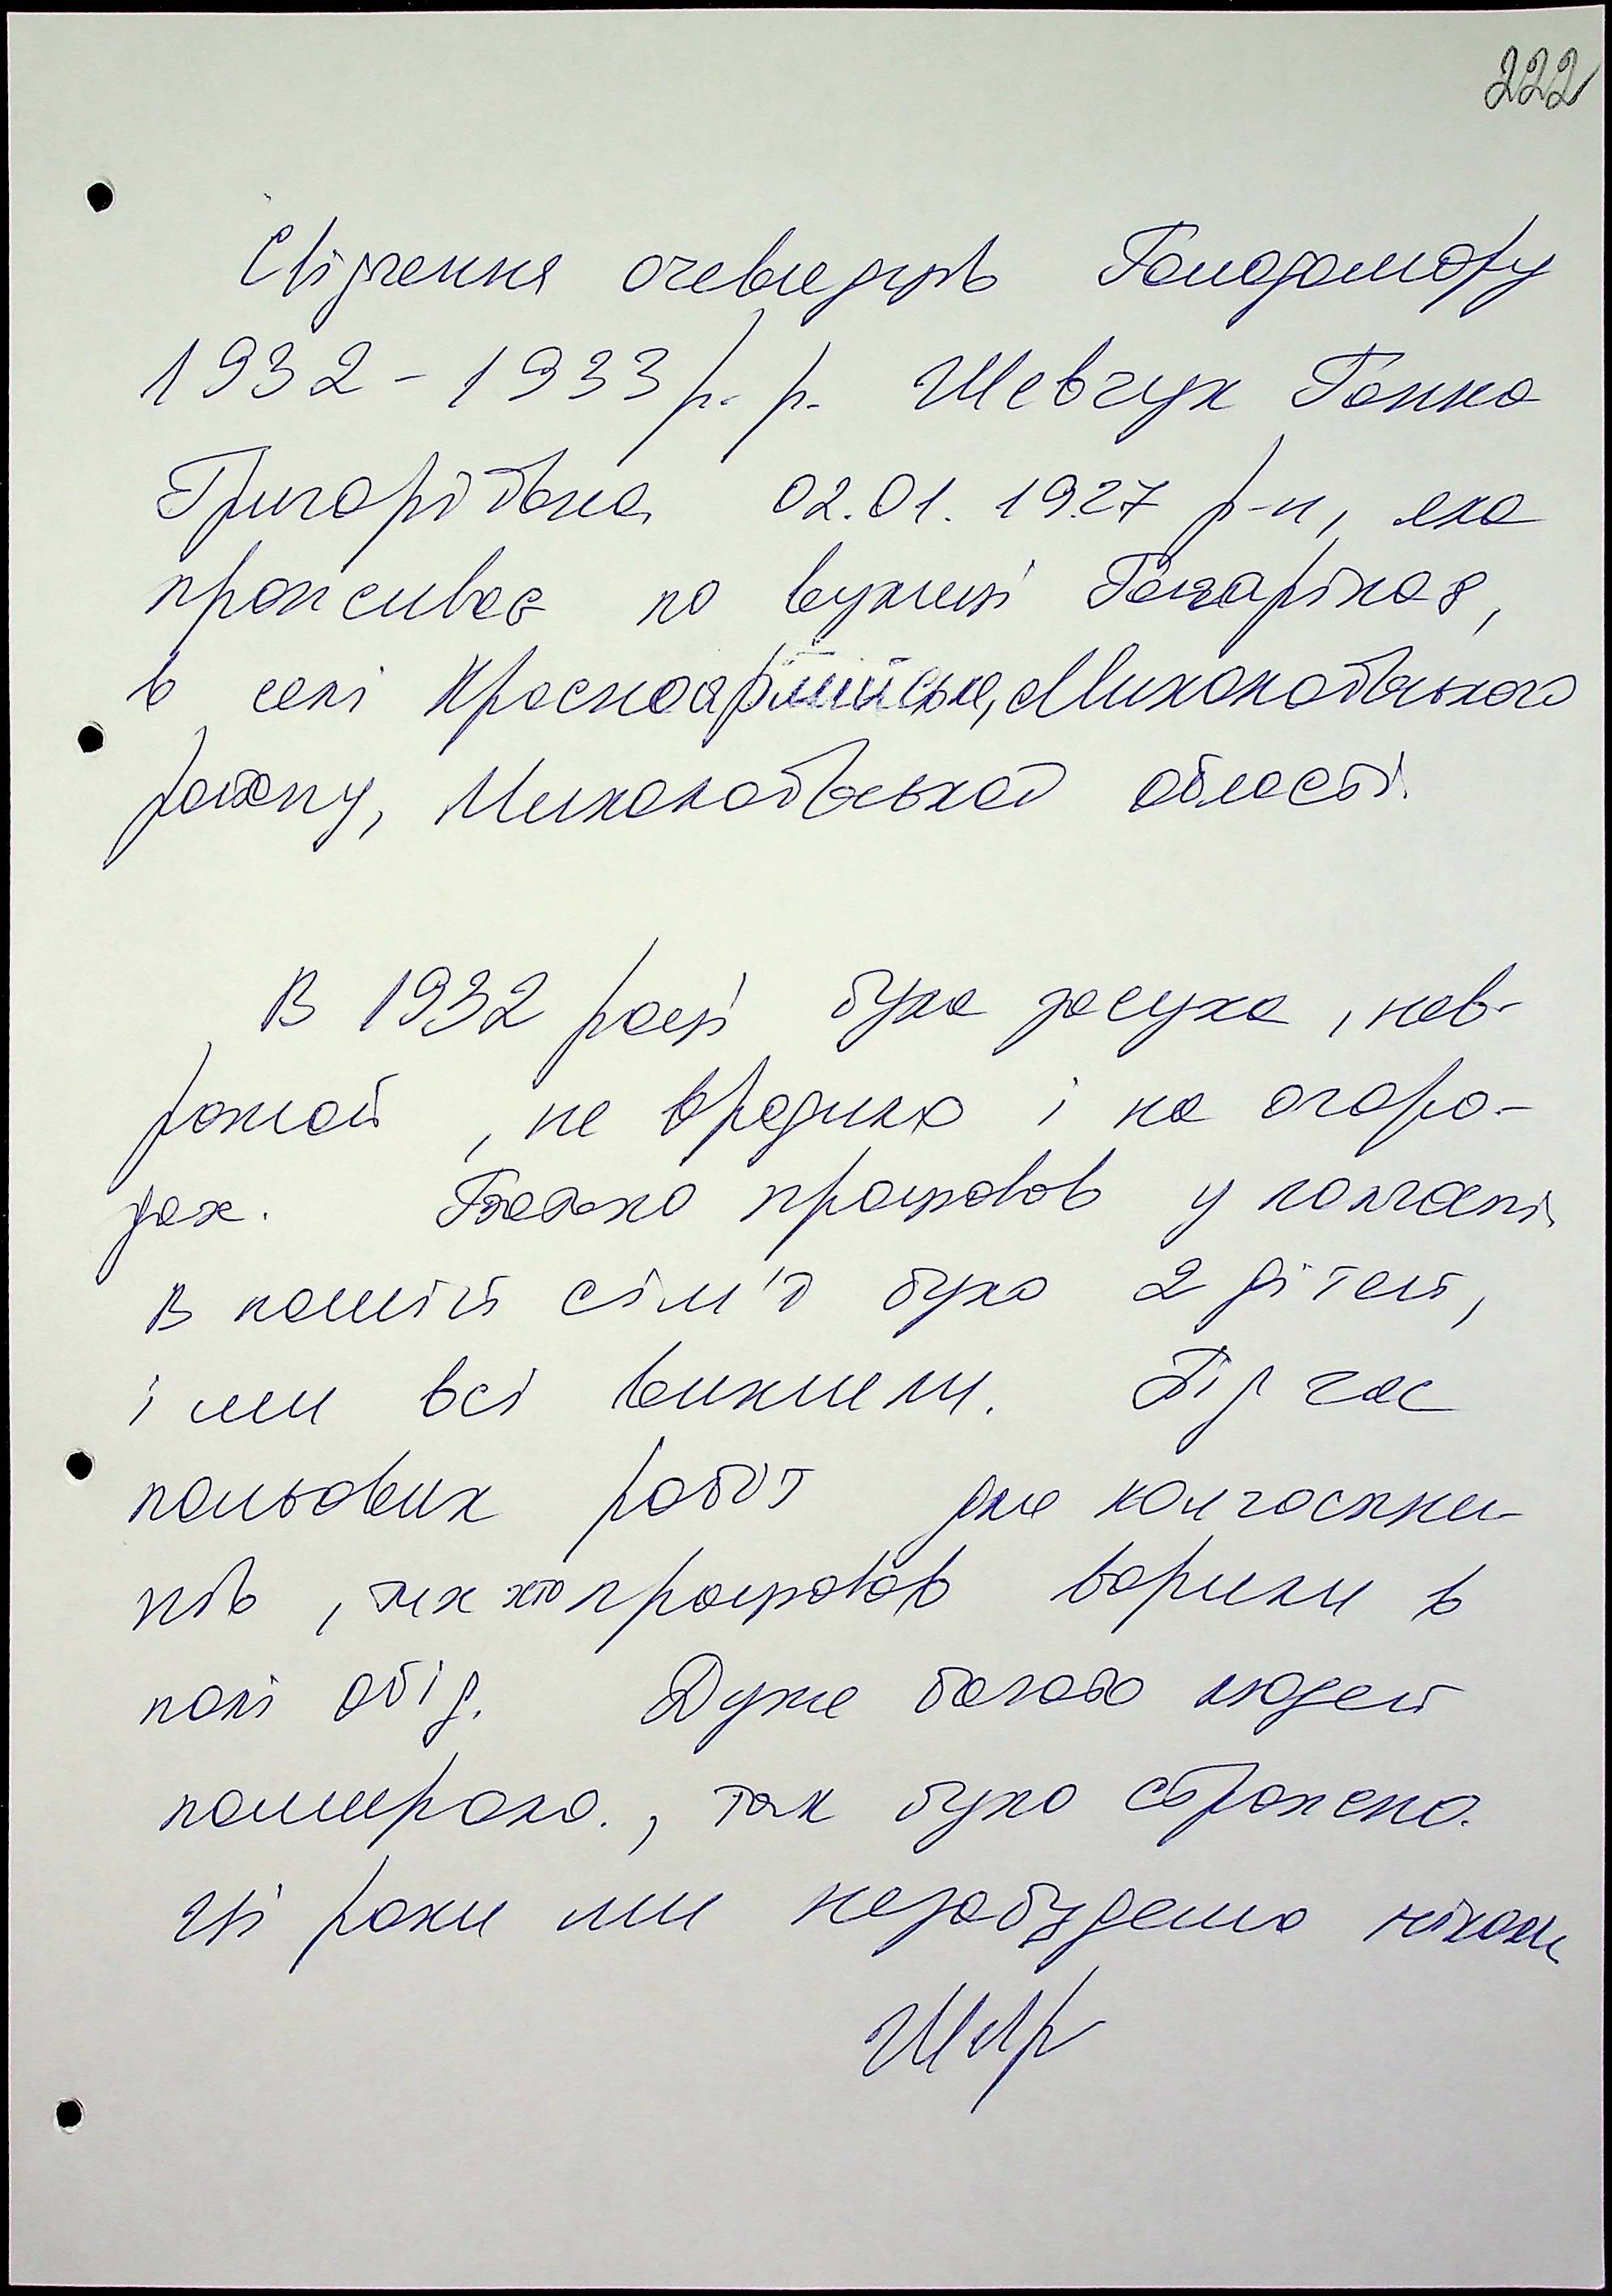 222
Свідчення очевидців Голодомору
1932 - 1933 р. р. Шевчук Ганна
Григорівна 02.01.1927 р-н, яка
проживає по вулиці Гагаріна 8,
в селі Красноармійське, Миколаївського
району, Миколаївської області.
В 1932 році була засуха, нев-
рожай, не вродило і на огоро-
дах. Батько працював у колгоспі
В нашій сім'ї було 2 дітей,
і ми всі вижили. Під час
польових робіт для колгоспни-
ків, тих хто працював варили в
полі обід. Дуже багато людей
помирало., так було страшно.
Ці роки ми незабудемо ніколи